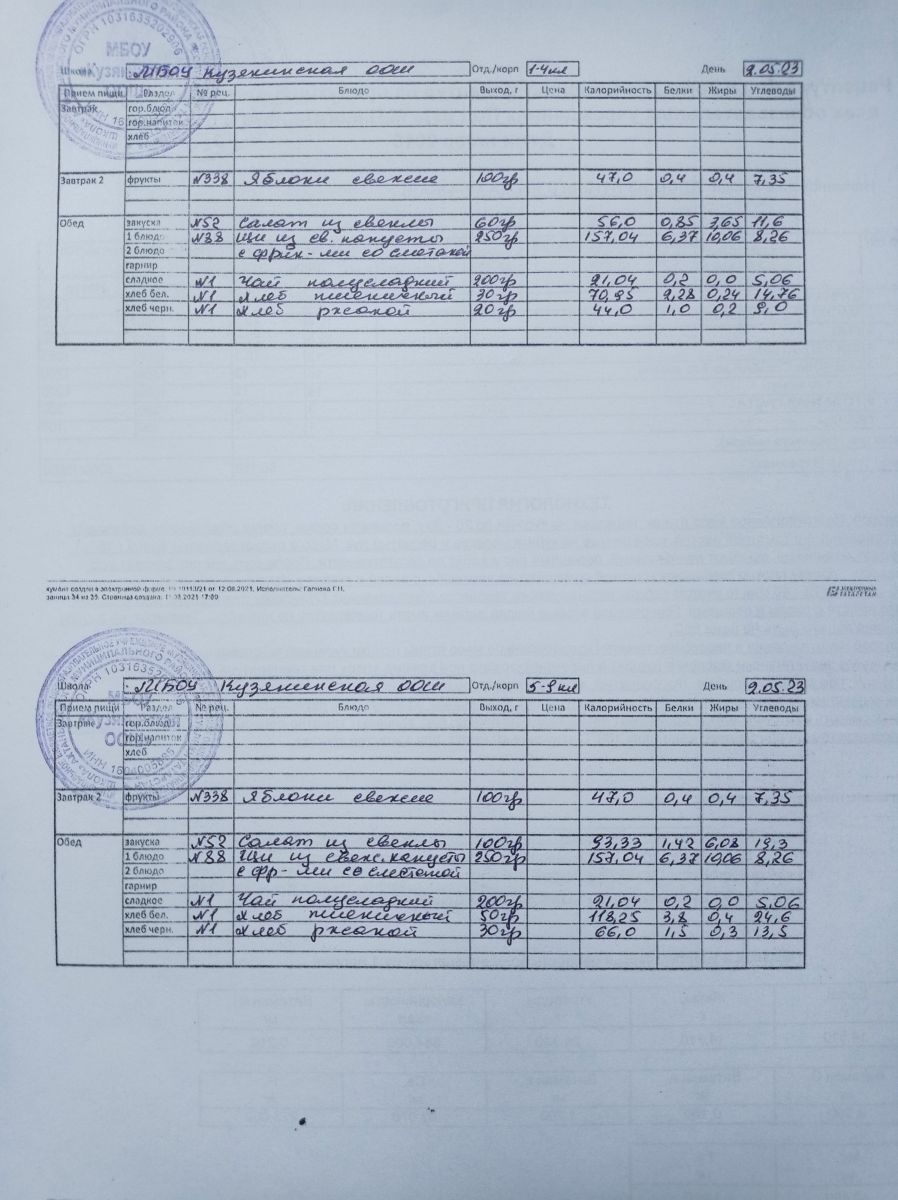 Школа МБОУ Кузякинская ООШ Отд./корп 1-4 кл День 2.05.23
Прием пищи Раздел № рец. Блюдо Выход, г Цена Калорийность Белки Жиры Углеводы
Завтрак гор.блюдо
гор.напиток
хлеб
Завтрак 2 фрукты №338 Яблоки свежие 100гр 47,0 0,4 0,4 7,35
Обед закуска №52 Салат из свеклы 60гр 56,0 0,85 3,65 11,6
1 блюдо №88 Щи из св. капусты 250гр 157,04 6,37 10,06 8,26
2 блюдо с фрик-ми со сметаной
гарнир
сладкое №1 Чай полусладкий 200гр 21,04 0,2 0,0 5,06
хлеб бел. №1 Хлеб пшеничный 30гр 70,95 2,28 0,24 14,76
хлеб черн. №1 Хлеб ржаной 20гр 44,0 1,0 0,2 9,0
кумент создан в электронной форме. № 10113/21 от 12.08.2021. Исполнитель: Галиева Г.Н.
заница 34 из 35. Страница создана: 11.08.2021 17:00
ЭЛЕКТРОННЫЙ
ТАТАРСТАН
Школа МБОУ Кузякинская ООШ Отд./корп 5-9 кл День 2.05.23
Прием пищи Раздел № рец. Блюдо Выход, г Цена Калорийность Белки Жиры Углеводы
Завтрак гор.блюдо
гор.напиток
хлеб
Завтрак 2 фрукты №338 Яблоки свежие 100гр 47,0 0,4 0,4 7,35
Обед закуска №52 Салат из свеклы 100гр 93,33 1,42 6,08 19,3
1 блюдо №88 Щи из свеж.капусты 250гр 157,04 6,37 10,06 8,26
2 блюдо с фр-ми со сметаной
гарнир
сладкое №1 Чай полусладкий 200гр 21,04 0,2 0,0 5,06
хлеб бел. №1 Хлеб пшеничный 50гр 118,25 3,8 0,4 24,6
хлеб черн. №1 Хлеб ржаной 30гр 66,0 1,5 0,3 13,5